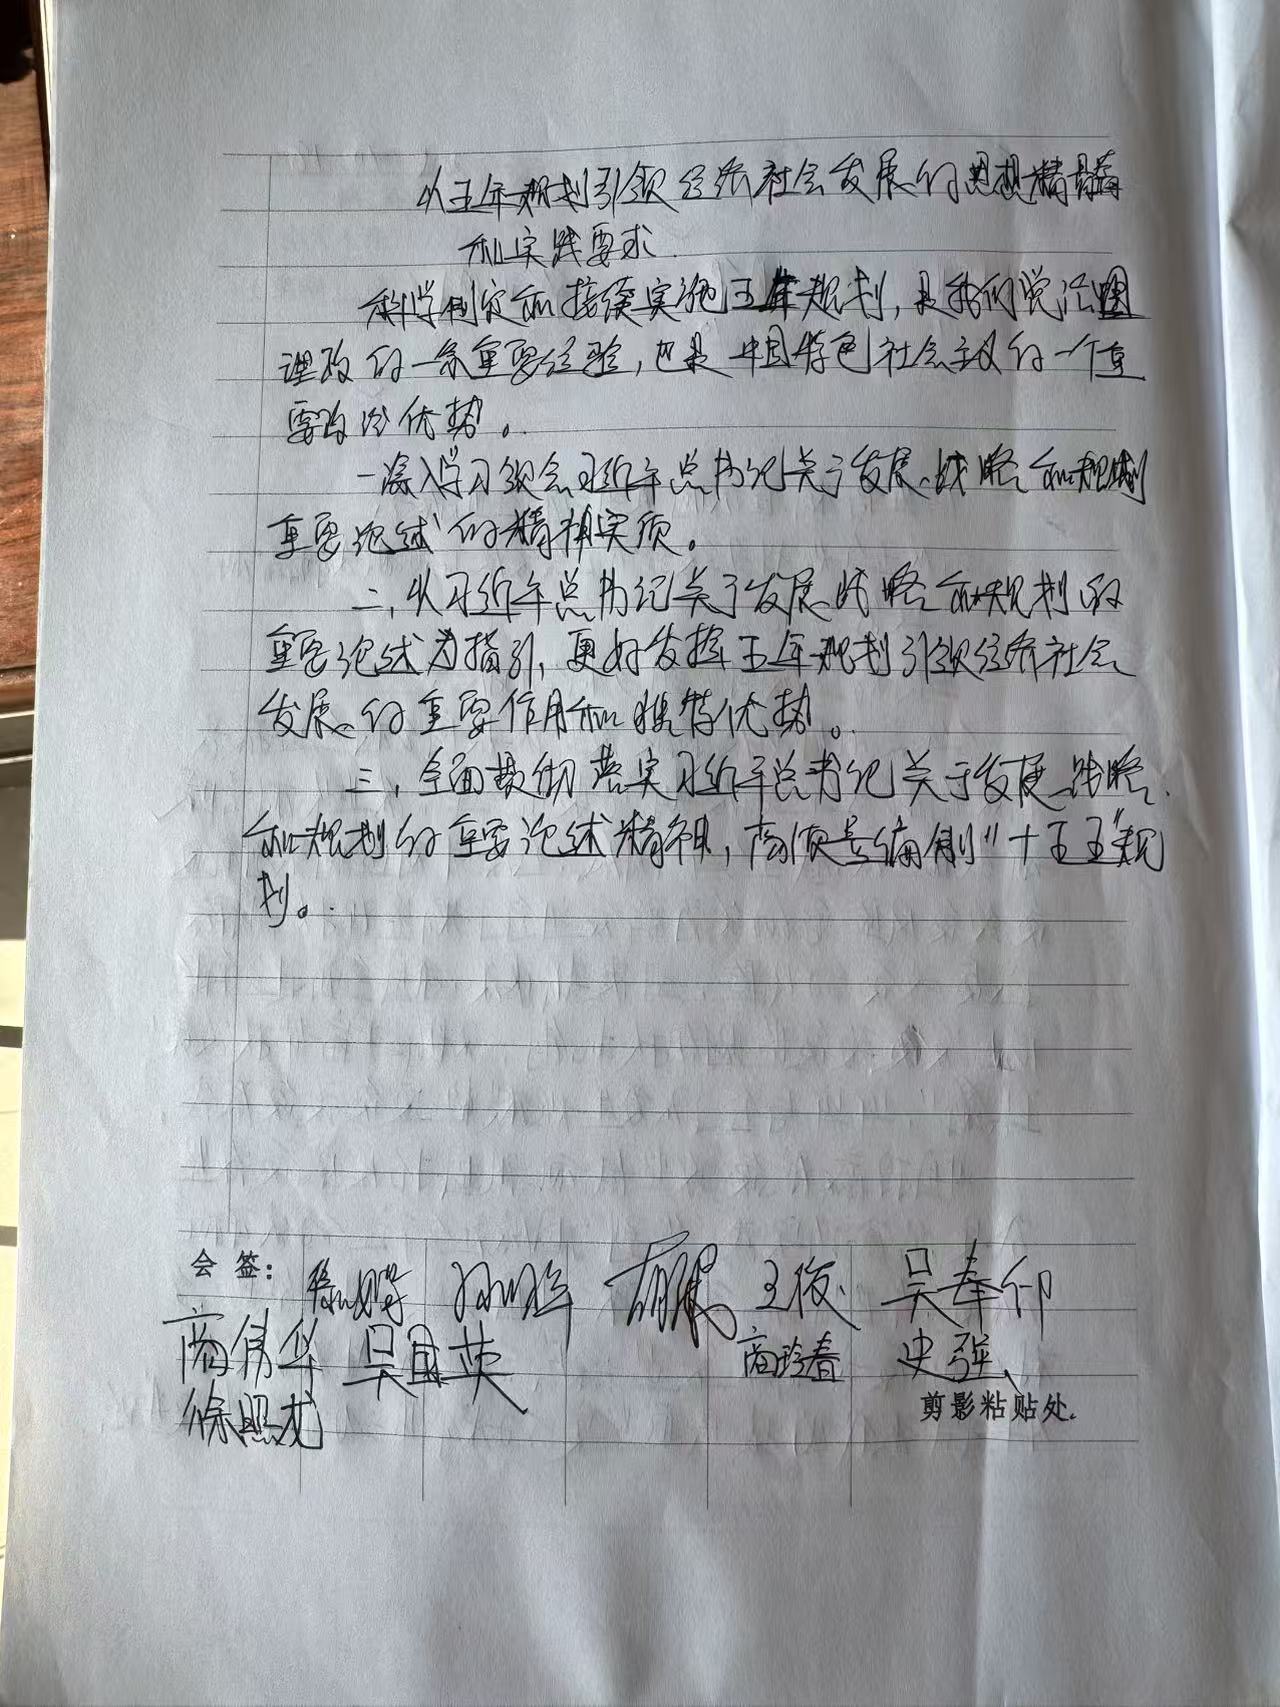 以五年规划引领经济社会发展的思想精髓
和实践要求.
科学制定和接续实施五年规划,是我们党治国
理政的一条重要经验,也是中国特色社会主义的一个重
要政治优势。
一深入学习领会习近平总书记关于发展战略和规划
重要论述的精神实质。
二,以习近平总书记关于发展战略和规划的
重要论述为指引,更好发挥五年规划引领经济社会
发展的重要作用和独特优势。
三,全面贯彻落实习近平总书记关于发展战略
和规划的重要论述精神,高质量编制"十五五"规
划。
会签: 王俊 吴奉印
商伟华 吴国英 商玲春 史强
徐照龙 剪影粘贴处.